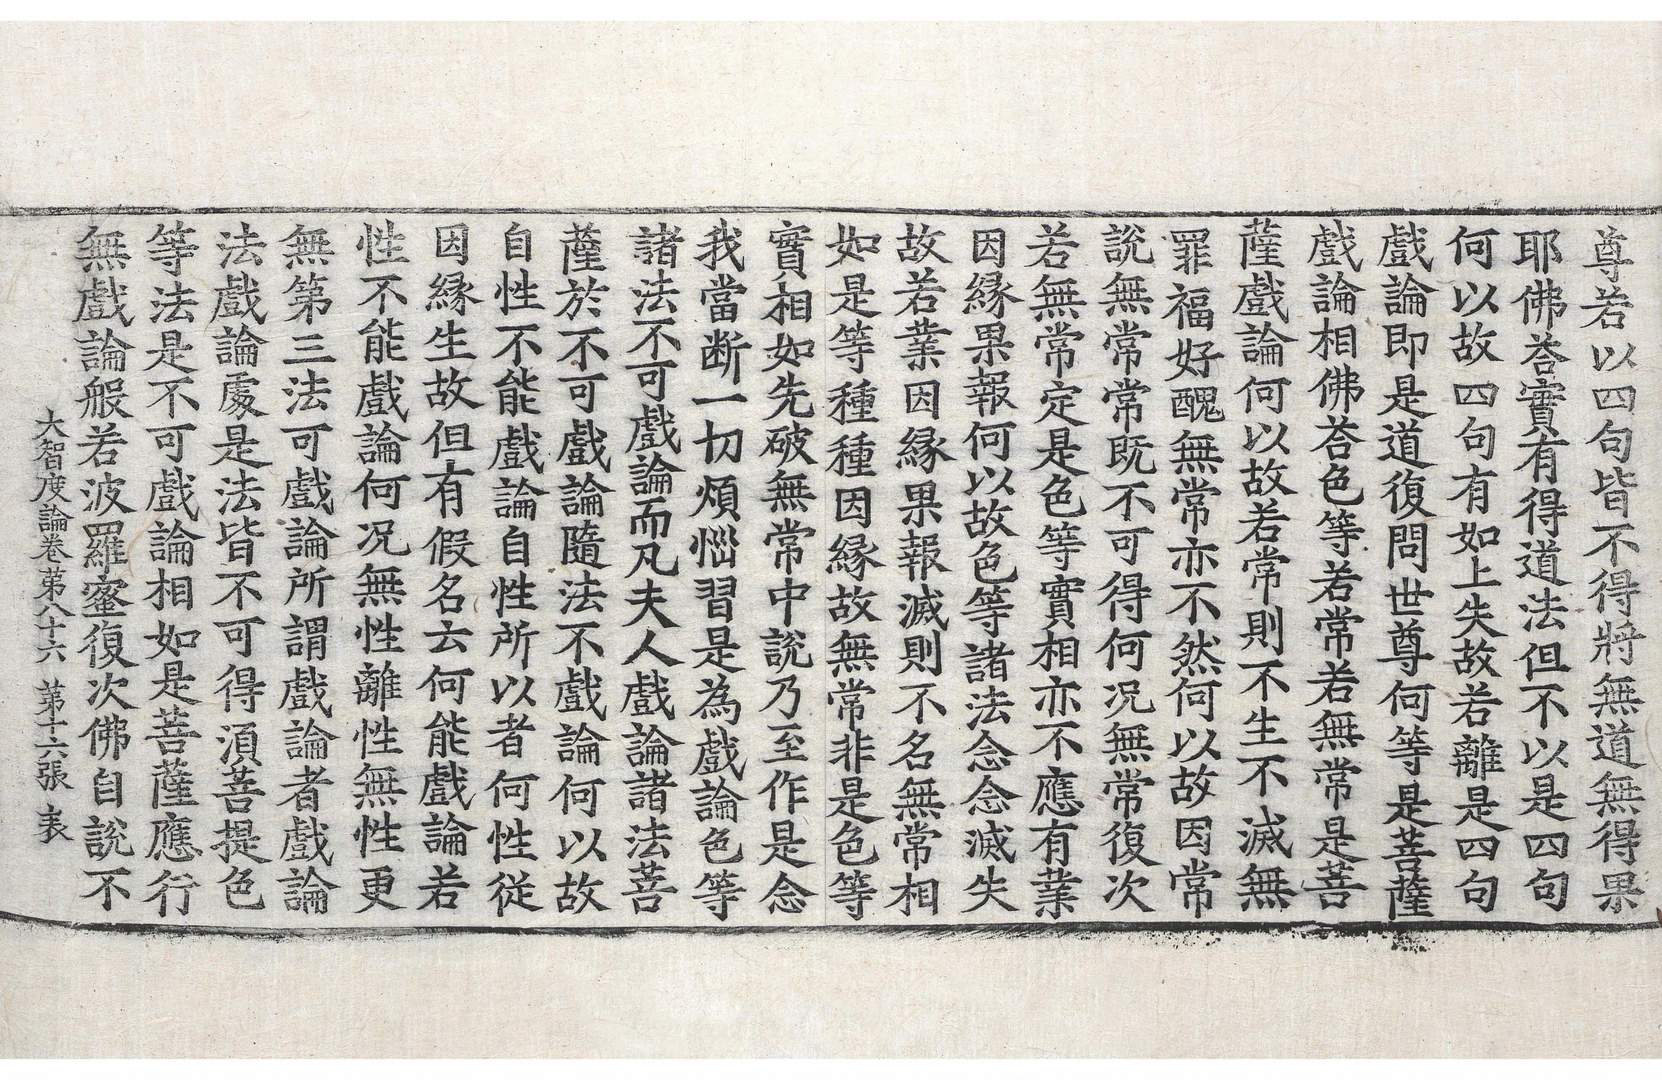 尊若以四句皆不得將無道無得果
耶佛荅實有得道法但不以是四句
何以故四句有如上失故若離是四句
戲論即是道復問世尊何等是菩薩
戲論相佛荅色等若常若無常是菩
薩戲論何以故若常則不生不滅無
罪福好醜無常亦不然何以故因常
說無常常既不可得何况無常復次
若無常定是色等實相亦不應有業
因緣果報何以故色等諸法念念滅失
故若業因緣果報滅則不名無常相
如是等種種因緣故無常非是色等
實相如先破無常中說乃至作是念
我當断一切煩惱習是為戲論色等
諸法不可戲論而凡夫人戲論諸法菩
薩於不可戲論隨法不戲論何以故
自性不能戲論自性所以者何性從
因緣生故但有假名云何能戲論若
性不能戲論何况無性離性無性更
無第三法可戲論所謂戲論者戲論
法戲論處是法皆不可得湏菩提色
等法是不可戲論相如是菩薩應行
無戲論般若波羅蜜復次佛自說不
大智度論卷第八十六 第十六張 表